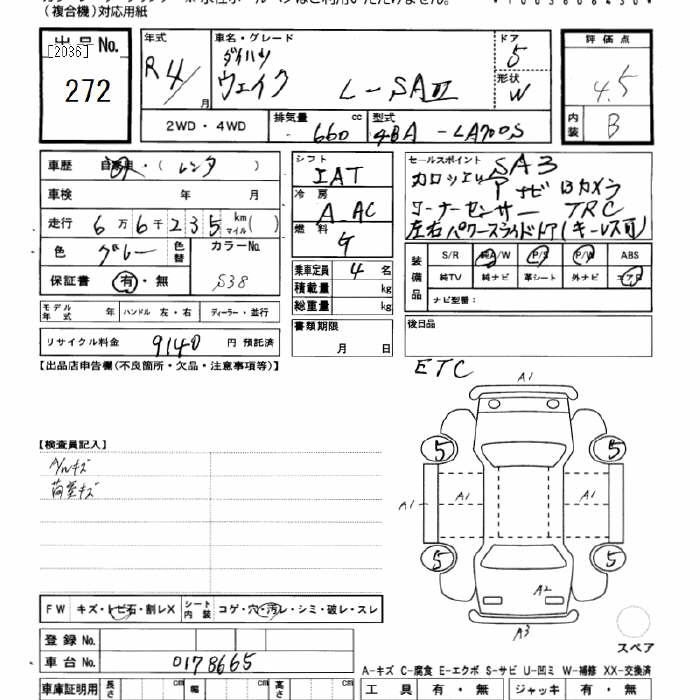 (複合機)対応用紙
出品No.
[2036]
272
年式
R4/
月
車名・グレード
ダイハツ
ウェイク L-SAⅢ
ドア
5
形状
W
2WD・4WD
排気量 660 cc
型式 4BA-LA700S
評価点
4.5
内装 B
車歴 自家用・(レンタ)
車検 年 月
走行 6万6千235 km マイル( )
色 グレー
色替
カラーNo. S38
保証書 有・無
シフト
IAT
冷房
A AC
燃料
ガ
乗車定員 4 名
積載量 kg
総重量 kg
書類期限
月 日
セールスポイント SA3
Pナビ Bカメラ
コーナーセンサー TRC
左右パワースライドドア(キーレス可)
装備品
S/R 純A/W P/S P/W ABS
純TV 純ナビ 革シート 外ナビ エアB
ナビ型番:
モデル年式 年 ハンドル 左・右 ディーラー・並行
後日品
リサイクル料金 9140 円 預託済
【出品店申告欄(不良箇所・欠品・注意事項等)】
ETC
A1
5
5
A1
A1
A1
5
5
A2
A3
【検査員記入】
A/Wキズ
荷室キズ
FW キズ・トビ石・割レX
シート内装 コゲ・穴・汚レ・シミ・破レ・スレ
登録No.
車台No. 0178665
スペア
A-キズ C-腐食 E-エクボ S-サビ U-凹ミ W-補修 XX-交換済
車庫証明用 長さ cm 幅 cm 高さ cm
工具 有・無 ジャッキ 有・無